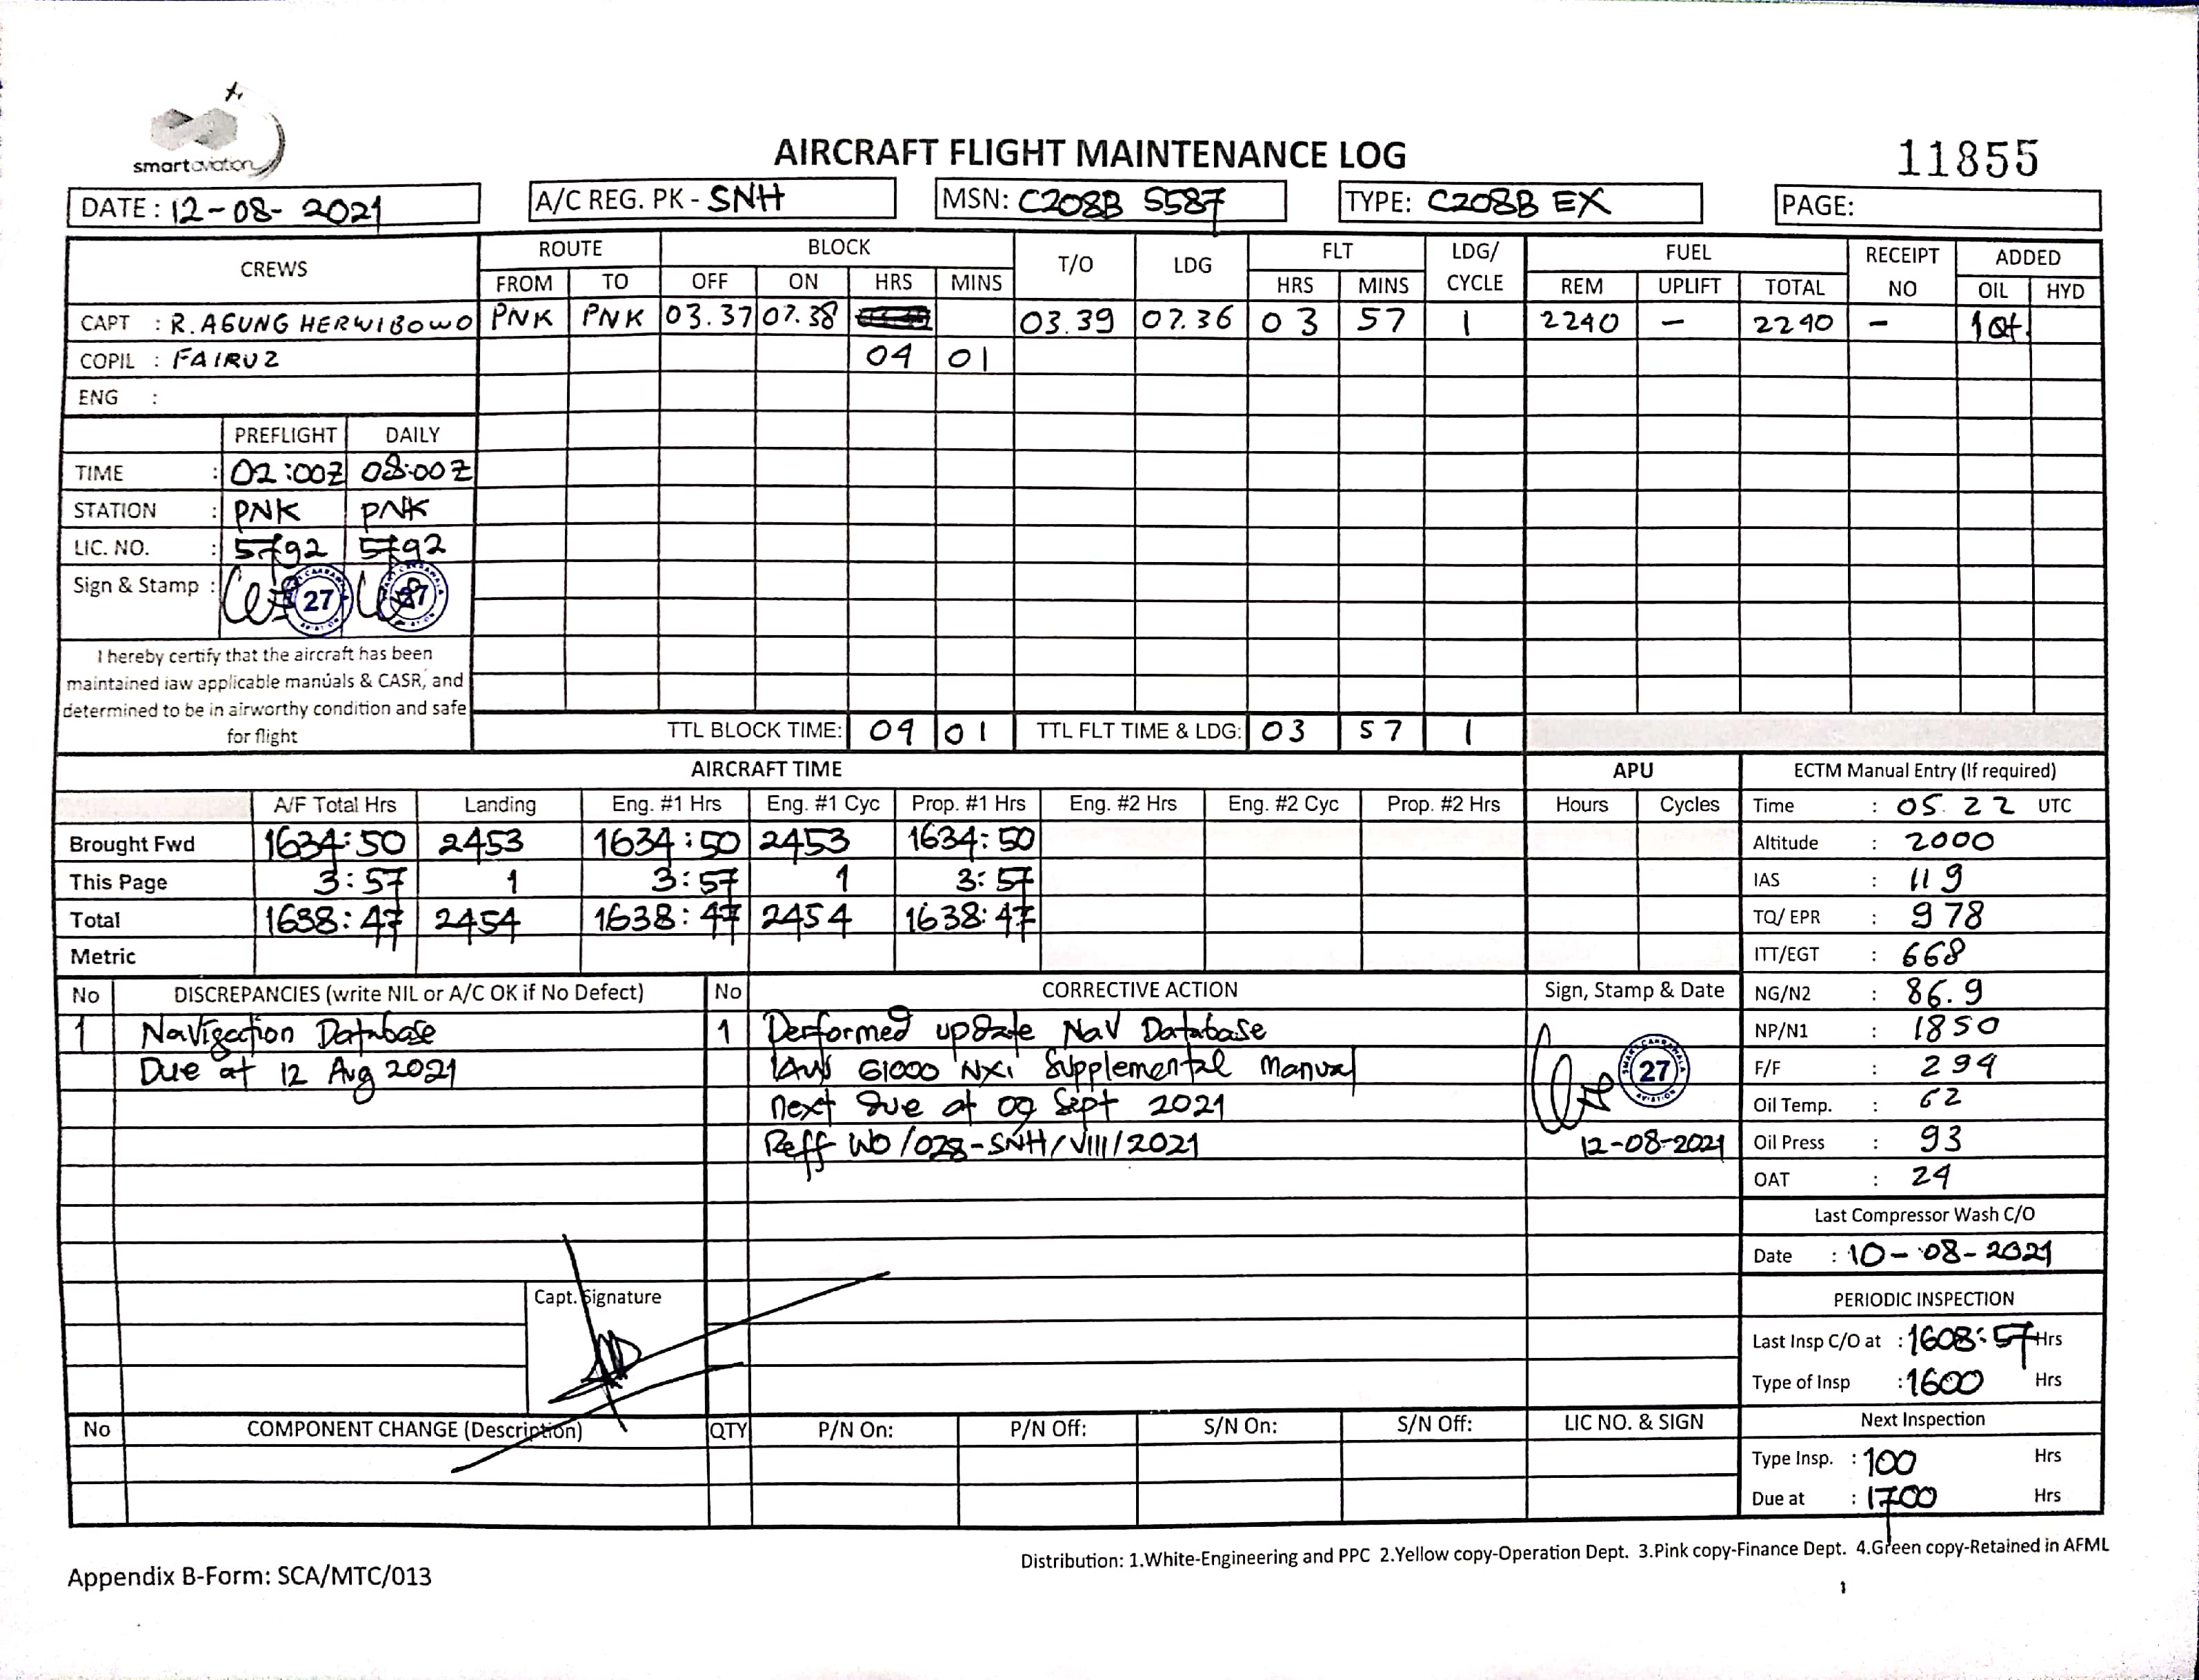 smartaviation
AIRCRAFT FLIGHT MAINTENANCE LOG
11855
DATE: 12-08-2021 A/C REG. PK - SNH MSN: C208B 5587 TYPE: C208B EX PAGE:
CREWS ROUTE BLOCK T/O LDG FLT LDG/ CYCLE FUEL RECEIPT NO ADDED
FROM TO OFF ON HRS MINS HRS MINS REM UPLIFT TOTAL OIL HYD
CAPT : R. AGUNG HERWIBOWO PNK PNK 03.37 07.38 03.39 07.36 03 57 1 2240 - 2240 - 1 Qt.
COPIL : FAIRUZ 04 01
ENG :
PREFLIGHT DAILY
TIME : 02:00Z 08:00Z
STATION : PNK PNK
LIC. NO. : 5792 5792
Sign & Stamp : 27 27
I hereby certify that the aircraft has been
maintained iaw applicable manuals & CASR, and
determined to be in airworthy condition and safe
for flight
TTL BLOCK TIME: 04 01 TTL FLT TIME & LDG: 03 57 1
AIRCRAFT TIME APU ECTM Manual Entry (If required)
A/F Total Hrs Landing Eng. #1 Hrs Eng. #1 Cyc Prop. #1 Hrs Eng. #2 Hrs Eng. #2 Cyc Prop. #2 Hrs Hours Cycles Time : 05.22 UTC
Brought Fwd 1634:50 2453 1634:50 2453 1634:50 Altitude : 2000
This Page 3:57 1 3:57 1 3:57 IAS : 119
Total 1638:47 2454 1638:47 2454 1638:47 TQ/ EPR : 978
Metric ITT/EGT : 668
No DISCREPANCIES (write NIL or A/C OK if No Defect) No CORRECTIVE ACTION Sign, Stamp & Date NG/N2 : 86.9
1 Navigation Database 1 Performed update Nav Database NP/N1 : 1850
Due at 12 Aug 2021 IAW G1000 NXi Supplemental Manual 27 F/F : 294
next due at 09 Sept 2021 Oil Temp. : 62
Reff WO/028-SNH/VIII/2021 12-08-2021 Oil Press : 93
OAT : 24
Last Compressor Wash C/O
Date : 10-08-2021
Capt. Signature PERIODIC INSPECTION
Last Insp C/O at : 1608:57 Hrs
Type of Insp : 1600 Hrs
No COMPONENT CHANGE (Description) QTY P/N On: P/N Off: S/N On: S/N Off: LIC NO. & SIGN Next Inspection
Type Insp. : 100 Hrs
Due at : 1700 Hrs
Distribution: 1.White-Engineering and PPC 2.Yellow copy-Operation Dept. 3.Pink copy-Finance Dept. 4.Green copy-Retained in AFML
Appendix B-Form: SCA/MTC/013